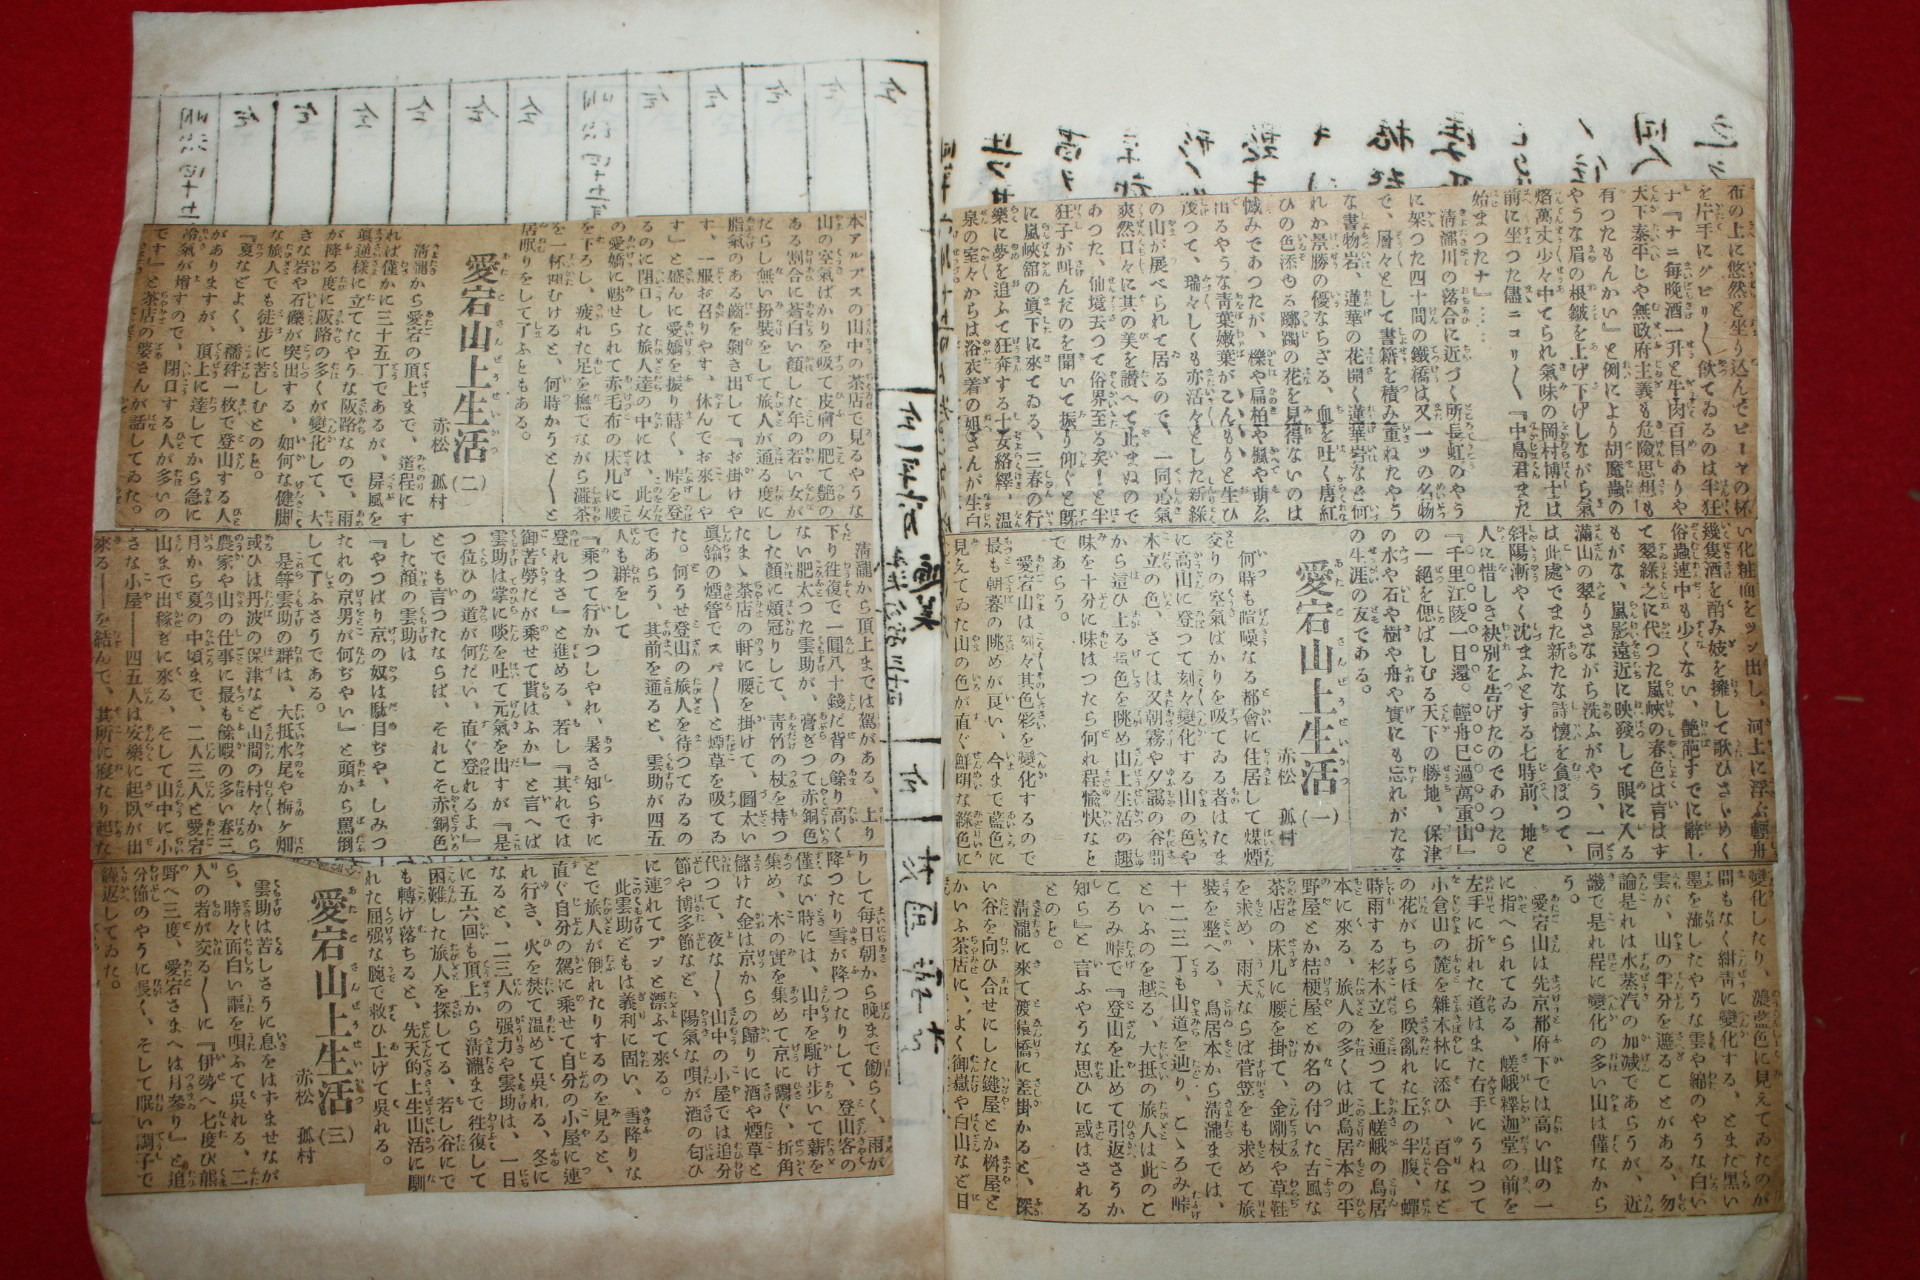 布の上に悠然と坐り込んでビーヤの杯
を片手にグビリ〱飲てゐるのは半狂
ナ『ナニ毎晩酒一升と牛肉百目ありや
天下泰平じや無政府主義も危險思想も
有つたもんかい』と例により胡魔蟲の
やうな眉の根皺を上げ下げしながら氣
焰萬丈少々中てられ氣味の岡村博士は
前に坐つた儘ニコリ〱『中島君また
始まつたナ』……
淸瀧川の落合に近づく所長虹のやう
に架つた四十間の鐵橋は又一ツの名物
で、層々として書籍を積み重ねたやう
な書物岩、蓮華の花開く蓮華岩など何
れか景勝の優ならざる、血を吐く唐紅
ひの色添ゆる躑躅の花を見得ないのは
憾みであつたが、櫟や扁柏や楓や萌ゑ
出るやうな靑葉嫩葉がこんもりと生ひ
茂つて、瑞々しくも亦活々とした新綠
の山が展べられて居るので、一同心氣
爽然口々に其の美を讃へて止まぬので
あつた、仙境去つて俗界至る矣！と半
狂子が叫んだのを聞いて振り仰ぐと旣
に嵐峽舘の眞下に來てゐる、三春の行
樂に夢を追ふて狂奔する士女絡繹、溫
泉の室々からは浴衣着の姐さんが生白
い化粧面をヌツと出し、河上に浮ぶ輕舟
幾隻酒を酌み妓を擁して歌ひさゞめく
俗蟲連中も少くない、艶麗すでに辭し
て翠綠之に代つた嵐峽の春色は言はず
もがな、嵐影遠近に映發して眼に入る
滿山の翠りさながら洗ふがやう、一同
は此處でまた新たな詩懷を負ぼつて、
斜陽漸やく沈まふとする七時前、地と
人に惜しき袂別を告げたのであつた。
『千里江陵一日還。輕舟已過萬重山』
の一絕を偲ばしむる天下の勝地、保津
の水や石や樹や舟や實にも忘れがたな
の生涯の友である。
愛宕山上生活(一)
赤松　孤村
何時も喧噪なる都會に住居して煤煙
交りの空氣ばかりを吸てゐる者はたま
に高山に登つて刻々變化する山の色や
木立の色、さては又朝霧や夕靄の谷間
から這ひ上る景色を眺め山上生活の趣
味を十分に味はつたら何れ程愉快なと
であらう。
愛宕山は刻々其色彩を變化するので
最も朝暮の眺めが良い、今まで藍色に
見えてゐた山の色が直ぐ鮮明な綠色に
變化したり、濃藍色に見えてゐたのが
間もなく紺靑に變化する、とまた黑い
墨を流したやうな雲や綿のやうな白い
雲が、山の半分を遮ることがある、勿
論是れは水蒸汽の加減であらうが、近
畿で是れ程に變化の多い山は僅なから
う。
愛宕山は先京都府下では高い山の一
に指へられてゐる、嵯峨釋迦堂の前を
左手に折れた道はまた右手にうねつて
小倉山の麓を雜木林に添ひ、百合など
の花がちらほら咲亂れた丘の半腹、蟬
時雨する杉木立を通つて上嵯峨の鳥居
本に來る、旅人の多くは此鳥居本の平
野屋とか桔梗屋とか名の付いた古風な
茶店の床几に腰を掛て、金剛杖や草鞋
を求め、雨天ならば菅笠をも求めて旅
裝を整へる、鳥居本から淸瀧までは、
十二三丁も山道を辿り、こゝろみ峠
といふのを越る、大抵の旅人は此のこ
ころみ峠で『登山を止めて引返さうか
知ら』と言ふやうな思ひに惑はされる
とのと。
淸瀧に來て渡猿橋に差掛かると、深
い谷を向ひ合せにした鎹屋とか桝屋と
かいふ茶店に、よく御嶽や白山など日
本アルプスの山中の茶店で見るやうな
山の空氣ばかりを吸て皮膚の肥て艷の
ある割合に蒼白い顏した年の若い女が
だらし無い扮裝をして旅人が通る度に
脂氣のある齒を剝き出して『お掛けや
す、一服お召りやす、休んでお來しや
す』と盛んに愛嬌を振り蒔く、峠を登
るのに閉口した旅人達の中には、此女
の愛嬌に魅せられて赤毛布の床几に腰
を下ろし、疲れた足を撫でながら澁茶
を一杯四むけると、何時かうと〱と
居眠りをして了ふともある。
愛宕山上生活(二)
赤松　孤村
淸瀧から愛宕の頂上まで、道程にす
れば僅かに三十五丁であるが、屛風を
眞逆樣に立てたやうな阪路なので、雨
が降る度に阪路の多くが變化して、大
きな岩や石礫が突出する、如何な健脚
な旅人でも徒歩に苦しむとのと。
『夏などよく、襦袢一枚で登山する人
がありますが、頂上に達してから急に
冷氣が增すので、閉口する人が多いの
です』と茶店の婆さんが話してゐた。
淸瀧から頂上までは駕がある、上り
下り徃復で一圓八十錢だ背の餘り高く
ない肥太つた雲助が、膏ぎつて赤銅色
した顏に頰冠りして、靑竹の杖を持つ
たまゝ茶店の軒に腰を掛けて、圓太い
眞鍮の煙管でスパ〱と煙草を吸てゐ
た。何うせ登山の旅人を待つてゐるの
であらう、其前を通ると、雲助が四五
人も群をして
『乘つて行かつしやれ、暑さ知らずに
登れまさ』と進める、若し『其れでは
御苦勞だが乘せて貰はふか』と言へば
雲助は掌に唾を吐て元氣を出すが『是
つ位ひの道が何だい、直ぐ登れるよ』
とでも言つたならば、それこそ赤銅色
した顏の雲助は
『やつぱり京の奴は駄目ぢや、しみつ
たれの京男が何ぢやい』と頭から罵倒
して了ふさうである。
是等雲助の群は、大抵水尾や栂ヶ畑
或ひは丹波の保津など山間の村々から
農家や山の仕事に最も餘暇の多い春三
月から夏の中頃まで、二人三人と愛宕
山まで出稼ぎに來る、そして山中に小
さな小屋――四五人は安樂に起臥が出
來る――を結んで、其所に寢たり起た
りして每日朝から晚まで働らく、雨が
降つたり雪が降つたりして、登山客の
僅ない時には、山中を駈け步いて薪を
集め、木の實を集めて京に鬻ぐ、折角
儲けた金は京からの歸りに酒や煙草と
代つて、夜な〱山中の小屋では追分
節や博多節など、陽氣な唄が酒の匂ひ
に連れてプンと漂ふて來る。
此雲助どもは義利に固い、雪降りな
どで旅人が倒れたりするのを見ると、
直ぐ自分の駕に乘せて自分の小屋に連
れ行き、火を焚て溫めて吳れる、冬に
なると、二三人の强力や雲助は、一日
に五六回も頂上から淸瀧まで徃復して
困難した旅人を探してる、若し谷にで
も轉げ落ちると、先天的上生山活に馴
れた屈强な腕で救ひ上げて吳れる。
愛宕山上生活(三)
赤松　孤村
雲助は苦しさうに息をはずませなが
ら、時々面白い謠を唄ふて吳れる、二
人の者が交る〱に『伊勢へ七度び熊
野へ三度、愛宕さまへは月參り』と追
分節のやうに長く、そして眠い調子で
繰返してゐた。